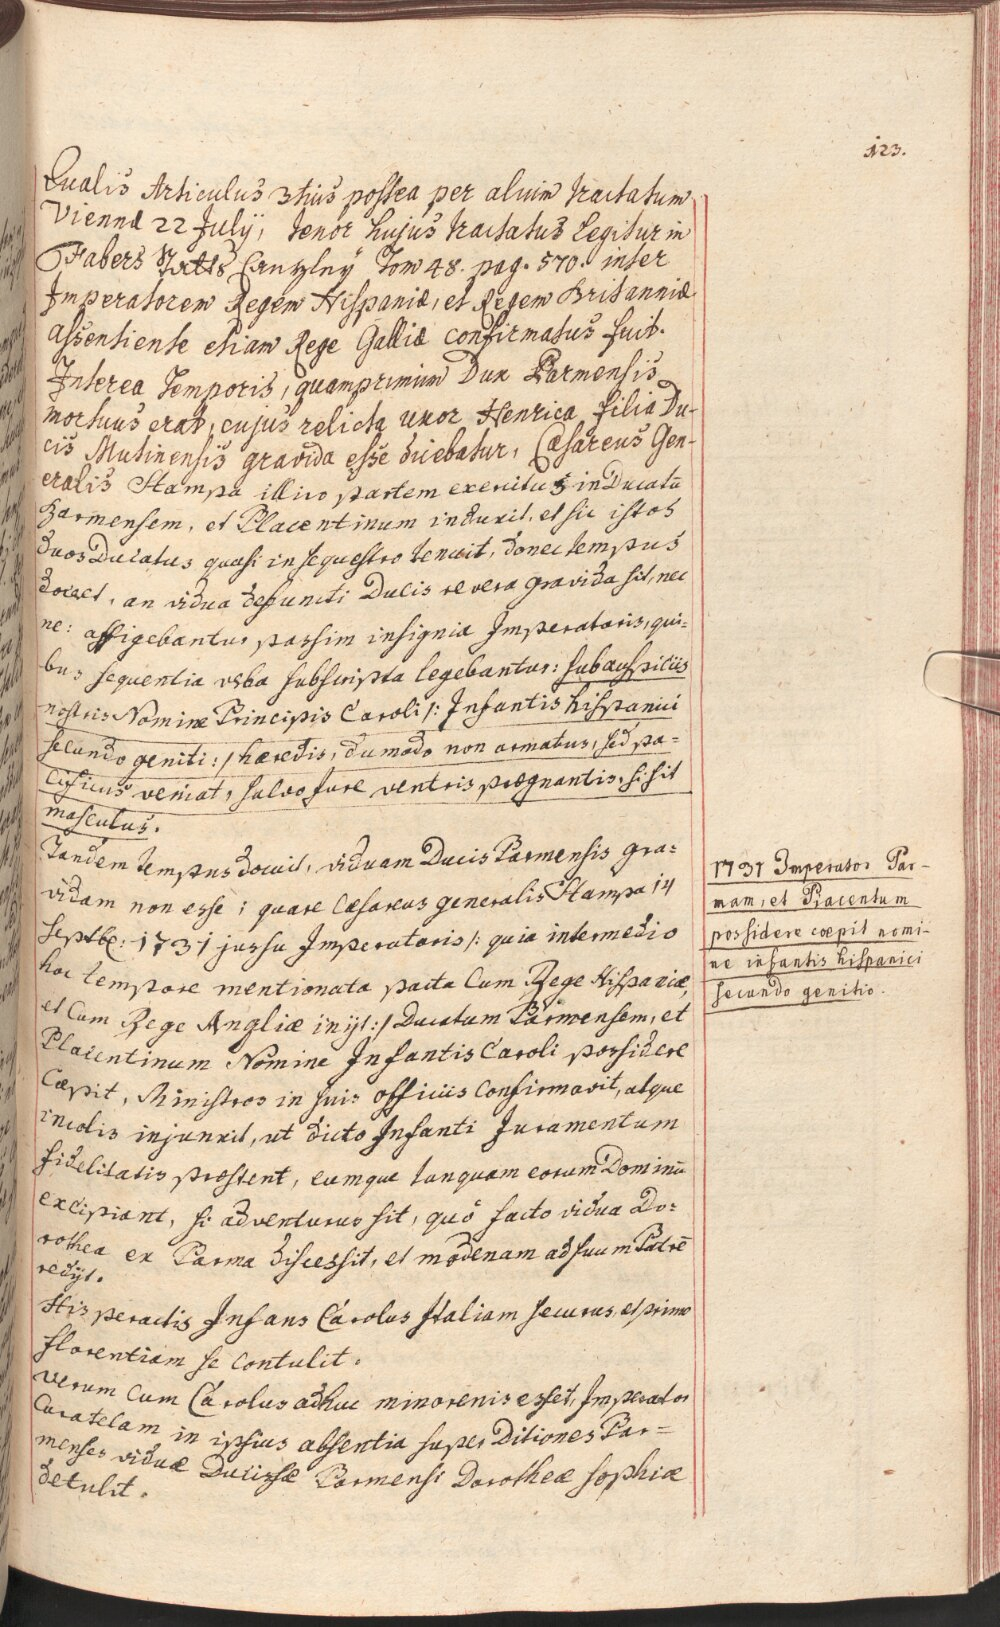 123.
Qualis Articulus 3tius postea per alium tractatum
Viennæ 22 Julÿ, tenor hujus tractatus legitur in
Fabers Staats Cantzleÿ Tom 48. pag. 570. inter
Imperatorem Regem Hispaniæ, et Regem Britanniæ
assentiente etiam Rege Galliæ confirmatus fuit.
Interea temporis, quamprimum Dux Parmensis
mortuus erat, cujus relicta uxor Henrica filia Du-
cis Mutinensis gravida esse dicebatur, Cæsareus Gen-
eralis Stampa illico partem exercitus in Ducatū
Parmensem, et Placentinum induxit, et sic istos
duos Ducatus quasi in sequestro tenuit, donec tempus
docet, an vidua defuncti Ducis revera gravida sit, nec
ne: affigebantur passim insignia Imperatoris, qui=
bus sequentia verba subscripta legebantur: sub auspiciis
nostris Nomine Principis Caroli /: Infantis hispanici
secundo geniti: / hæredis, dumodo non armatus, sed pa=
cificus veniat, salvo Jure ventris prægnantis, si sit
masculus.
Tandem tempus docuit, viduam Ducis Parmensis gra=
vidam non esse; quare Cæsareus generalis Stampa 14
Septbr: 1731 jussu Imperatoris /: quia intermedio
hoc tempore mentionata pacta Cum Rege Hispaniæ,
et Cum Rege Angliæ inijt: / Ducatum Parmensem, et
Placentinum Nomine Infantis Caroli possidere
Cæpit, Ministros in suis officiis Confirmavit, atque
incolis injunxit, ut dicto Infanti Juramentum
fidelitatis præstent, eumque tanquam eorum Dominū
excipiant, si adventurus sit, quô facto vidua Do=
rothea ex Parma discessit, et modenam ad suum Patrē
redijt.
His peractis Infans Carolus Italiam securus, et primo
florentiam se Contulit.
Verum Cum Carolus adhuc minorenis esset, Imperator
Curatelam in ipsius absentia super Ditiones Par=
menses viduæ Ducissæ Parmensi Dorotheæ sophiæ
detulit.
1731 Imperator Par-
mam, et Placentum
possidere cœpit nomi-
ne infantis hispanici
secundo genitio.